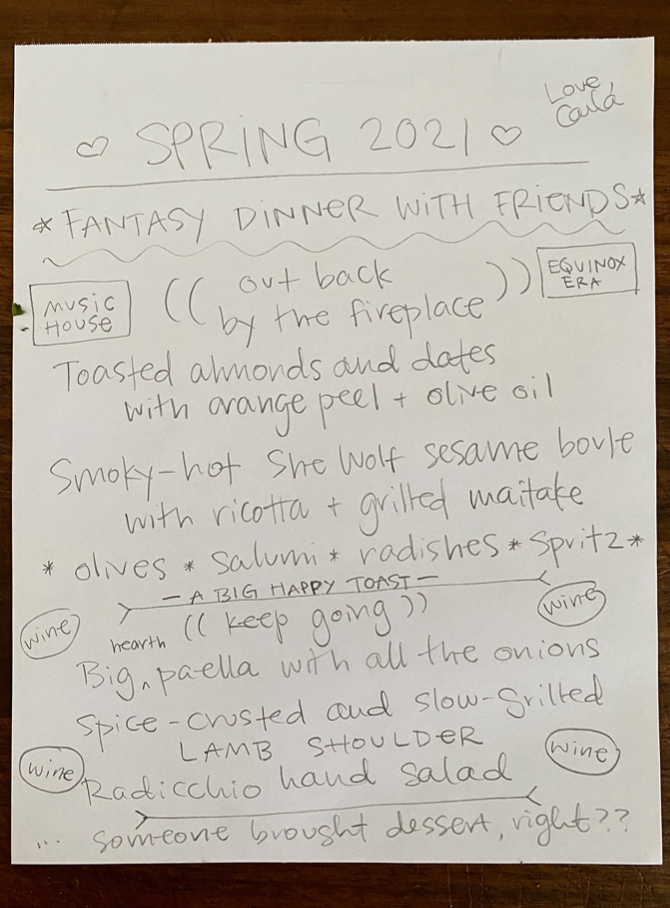 Love,
Carla
♡ SPRING 2021 ♡
*FANTASY DINNER WITH FRIENDS*
MUSIC
HOUSE
(( out back
by the fireplace ))
EQUINOX
ERA
Toasted almonds and dates
with orange peel + olive oil
Smoky-hot She Wolf sesame boule
with ricotta + grilled maitake
* olives * salumi * radishes * spritz *
— A BIG HAPPY TOAST —
wine
(( keep going ))
wine
Big ^hearth paella with all the onions
Spice-crusted and slow-grilled
LAMB SHOULDER
wine
wine
Radicchio hand salad
... someone brought dessert, right??